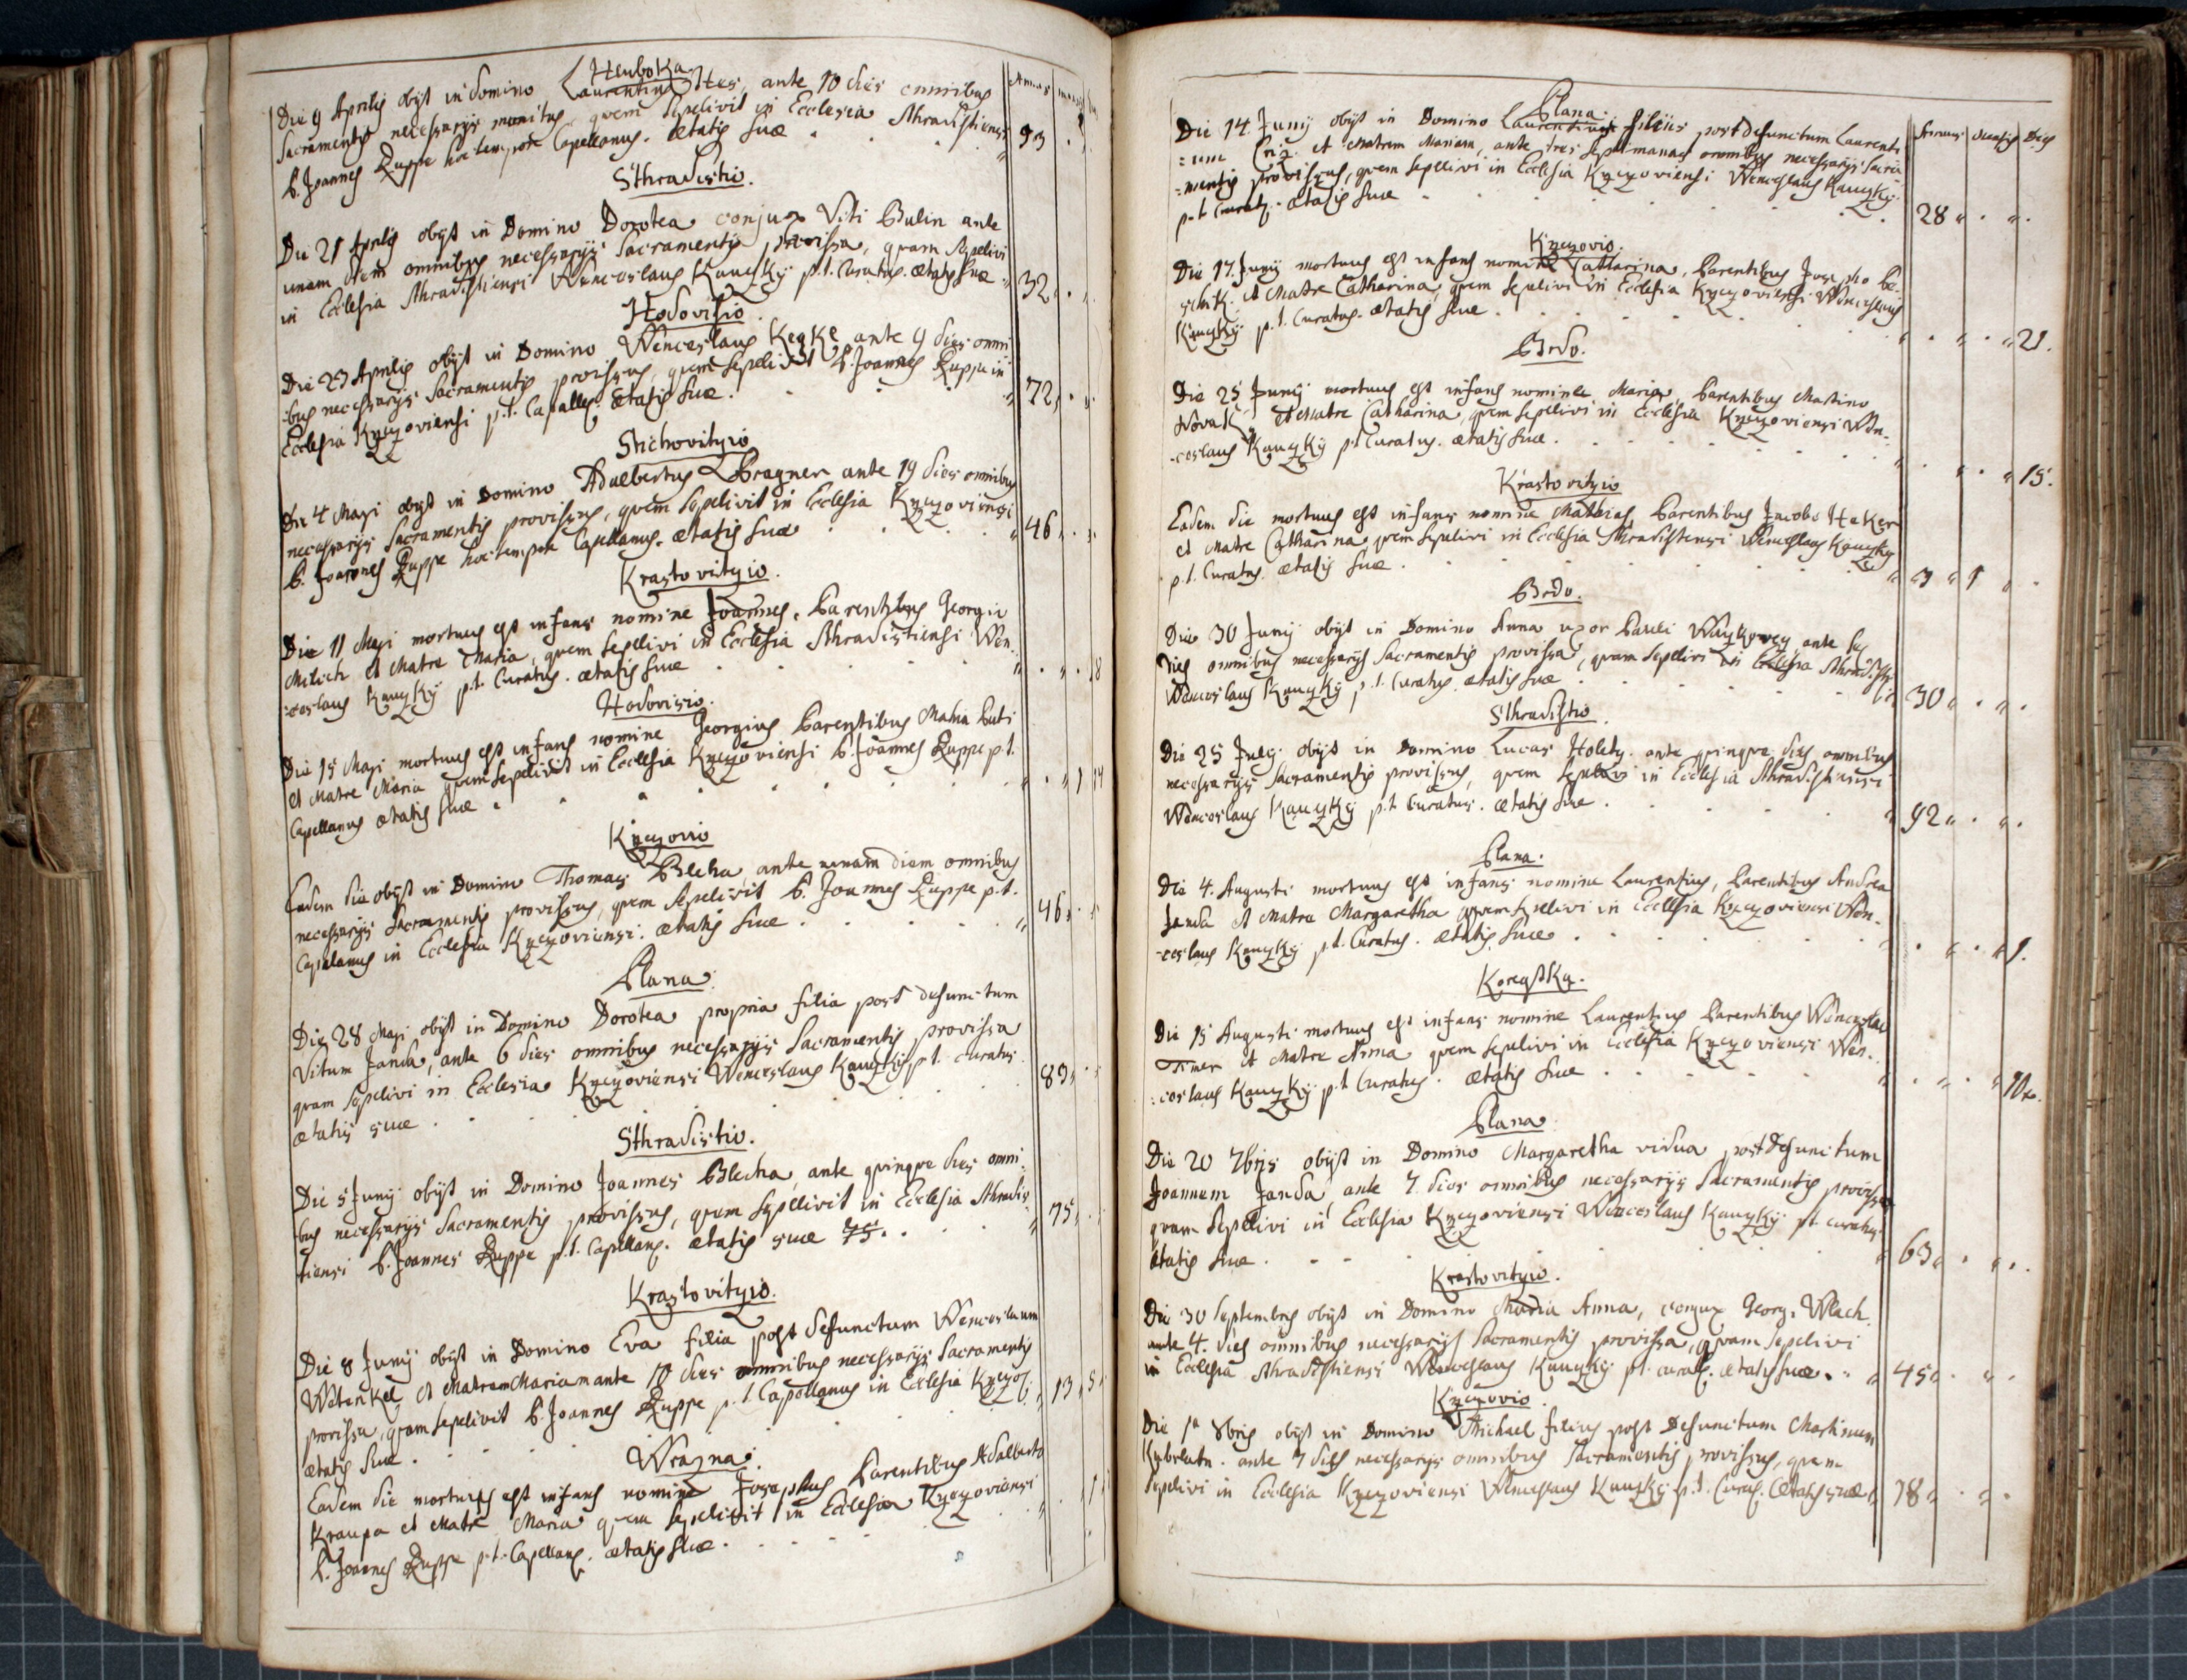 Hluboka.
Die 9 Aprilis obijt in Domino Laurentius Hes, ante 10 dies omnibus
Sacramentis necessarijs munitus, quem Sepelivit in Ecclesia Sthradistiensi
P. Joannes Ruppe hoc tempore Capellanus. Ætatis Suæ 93
Sthradistio.
Die 21 Aprilis obijt in Domino Dorotea conjux Viti Bulin ante
unam diem omnibus necessarijs Sacramentis provissa, quam Sepelivi
in Ecclesia Sthradistiensi Wenceslaus Kauzky p.t. Curatus. Ætatis Suæ 32
Hodovisio.
Die 23 Aprilis obijt in Domino Wenceslaus ante 9 dies omni
bus necessarijs Sacramentis provissus, quem Sepelivit P. Joannes Ruppe in
Ecclesia Knezoviensi p.t. Capellus. Ætatis Suæ. 72
Stichovityio
Die 4 Maji obijt in Domino Adalbertus Pragner ante 19 dies omnibus
necessarijs Sacramentis provissus, quem Sepelivit in Ecclesia Knezoviensi
P. Joannes Ruppe hoc tempore Capellanus. Ætatis Suæ 46
Krastovityio.
Die 11 Maji mortuus est infans nomine Joannes, Parentibus Georgio
Milich et Matre Maria, quem Sepelivi in Ecclesia Sthradistiensi Wen-
-ceslaus Kauzky p.t. Curatus. Ætatis Suæ 18
Hodovisio.
Die 15 Maji mortuus est infans nomine Georgius Parentibus Mathia
et Matre Maria quem Sepelivit in Ecclesia Knezoviensi P. Joannes Ruppe p.t.
Capellanus Ætatis Suæ 1 14
Knezovio
Eadem die obijt in Domino Thomas Blecha, ante unam diem omnibus
necessarijs Sacramentis provissus, quem Sepelivit P. Joannes Ruppe p.t.
Capelanus in Ecclesia Knezoviensi. Ætatis Suæ 46
Plana.
Die 28 Maji obijt in Domino Dorotea propria filia post defunctum
Vitum Janda, ante 6 dies omnibus necessarijs Sacramentis provissa
quam Sepelivi in Ecclesia Knezoviensi Wenceslaus Kauzky p.t. curatus.
Ætatis suæ 83
Sthradistio.
Die 5 Junij obijt in Domino Joannes Blecha, ante quinque dies omni-
bus necessarijs Sacramentis provissus, quem Sepelivit in Ecclesia Sthradis-
tiensi P. Joannes Ruppe p.t. Capellanus. Ætatis suæ 75. 75
Krastovityio.
Die 8 Junij obijt in Domino Eva filia post defunctum Wenceslaum
Watenkel et Matrem Mariam ante 10 dies omnibus necessarijs Sacramentis
provissa, quam Sepelivit P. Joannes Ruppe p.t. Capellanus in Ecclesia Knezov.
Ætatis Suæ 13 5
Wrazna.
Eadem die mortuus est infans nomine Josephus Parentibus Adalberto
Kraupa et Matre Maria quem Sepelivit in Ecclesia Knezoviensi
P. Joannes Ruppe p.t. Capellanus. Ætatis Suæ
Plana.
Annus Mensis Dies
Die 14 Junij obijt in Domino Laurentius filius post defunctum Laurenti
=um et Matrem Mariam, ante tres Septimanas omnibus necessarijs Sacra-
-mentis provissus, quem Sepelivi in Ecclesia Knezoviensi Wenceslaus Kauzky
p.t. Curatus. Ætatis Suæ 28
Knezovio.
Die 17. Junij mortuus est infans nomine Catharina, Parentibus Josepho Be-
schik et Matre Catharina, quem Sepelivi in Ecclesia Knezoviensi Wenceslaus
Kauzky p.t. Curatus. Ætatis Suæ 21.
Brdo.
Die 25 Junij mortuus est infans nomine Maria, Parentibus Martino
Novak et Matre Catharina, quem Sepelivi in Ecclesia Knezoviensi Wen-
-ceslaus Kauzky p.t Curatus. Ætatis Suæ. 15.
Krastovityio
Eadem die mortuus est infans nomine Mathias, Parentibus Jacobo Heker
et Matre Catharina, quem Sepelivi in Ecclesia Sthradistiensi Wenceslaus Kauzky
p.t. Curatus. Ætatis Suæ. 3 1
Brdo.
Die 30 Junij obijt in Domino Anna uxor Pauli ante
dies omnibus necessarijs Sacramentis provissa, quam Sepelivi in Ecclesia Sthradistien
Wenceslaus Kauzky p.t. Curatus. Ætatis Suæ 30
Sthradistio
Die 25 Julij obijt in Domino Lucas Holety. ante quinque dies omnibus
necessarijs Sacramentis provissus, quem Sepelivi in Ecclesia Sthradistiensi
Wenceslaus Kauzky p.t. Curatus. Ætatis Suæ. 92
Plana.
Die 4. Augusti mortuus est infans nomine Laurentius, Parentibus Andrea
Janda et Matre Margaretha quem Sepelivi in Ecclesia Knezoviensi Wen-
-ceslaus Kauzky p.t. Curatus. Ætatis Suæ 1.
Die 15 Augusti mortuus est infans nomine Laurentius Parentibus Wenceslao
Timer et Matre Anna quem Sepelivi in Ecclesia Knezoviensi Wen-
-ceslaus Kauzky p.t Curatus. Ætatis Suæ 10
Plana.
Die 20 7bris obijt in Domino Margaretha vidua post Defunctum
Joannem Janda ante 7. dies omnibus necessarijs Sacramentis provissa
quam Sepelivi in Ecclesia Knezoviensi Wenceslaus Kauzky p.t. curatus.
Ætatis Suæ 63
Krastovityio.
Die 30 Septembris obijt in Domino Maria Anna, conjux Georg. Wlach.
ante 4. dies omnibus necessarijs Sacramentis provissa, quam Sepelivi
in Ecclesia Sthradistiensi Wenceslaus Kauzky p.t. curatus. Ætatis Suæ. 45
Knezovio.
Die 1a 8bris obijt in Domino Michael filius post Defunctum Martinum
ante 7 dies necessarijs omnibus Sacramentis provissus, quem
Sepelivi in Ecclesia Knezoviensi Wenceslaus Kauzky p.t. Curatus. Ætatis suæ 78